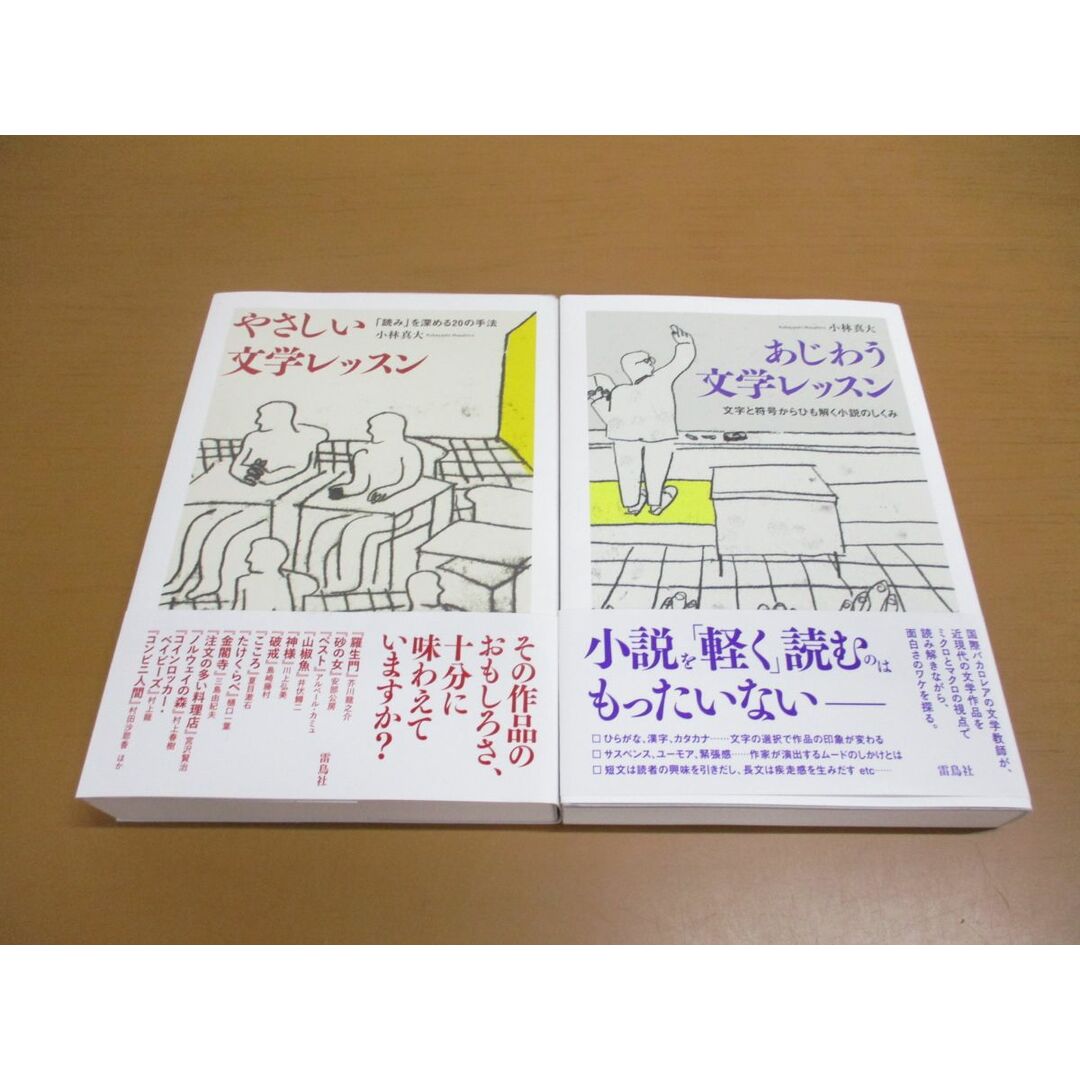 やさしい
文学レッスン
「読み」を深める20の手法
小林真大
その作品の
おもしろさ、
十分に
味わえて
いますか?
『羅生門』芥川龍之介
『砂の女』安部公房
『ペスト』アルベール・カミュ
『山椒魚』井伏鱒二
『神様』川上弘美
『破戒』島崎藤村
『こころ』夏目漱石
『たけくらべ』樋口一葉
『金閣寺』三島由紀夫
『注文の多い料理店』宮沢賢治
『ノルウェイの森』村上春樹
『コインロッカー・
ベイビーズ』村上龍
『コンビニ人間』村田沙耶香 ほか
雷鳥社
小林真大 Kobayashi Masahiro
あじわう
文学レッスン
文字と符号からひも解く小説のしくみ
小説を「軽く」読むのは
もったいない――
□ ひらがな、漢字、カタカナ……文字の選択で作品の印象が変わる
□ サスペンス、ユーモア、緊張感……作家が演出するムードのしかけとは
□ 短文は読者の興味を引きだし、長文は疾走感を生みだす etc……
国際バカロレアの文学教師が、
近現代の文学作品を
ミクロとマクロの視点で
読み解きながら、
面白さのワケを探る。
雷鳥社